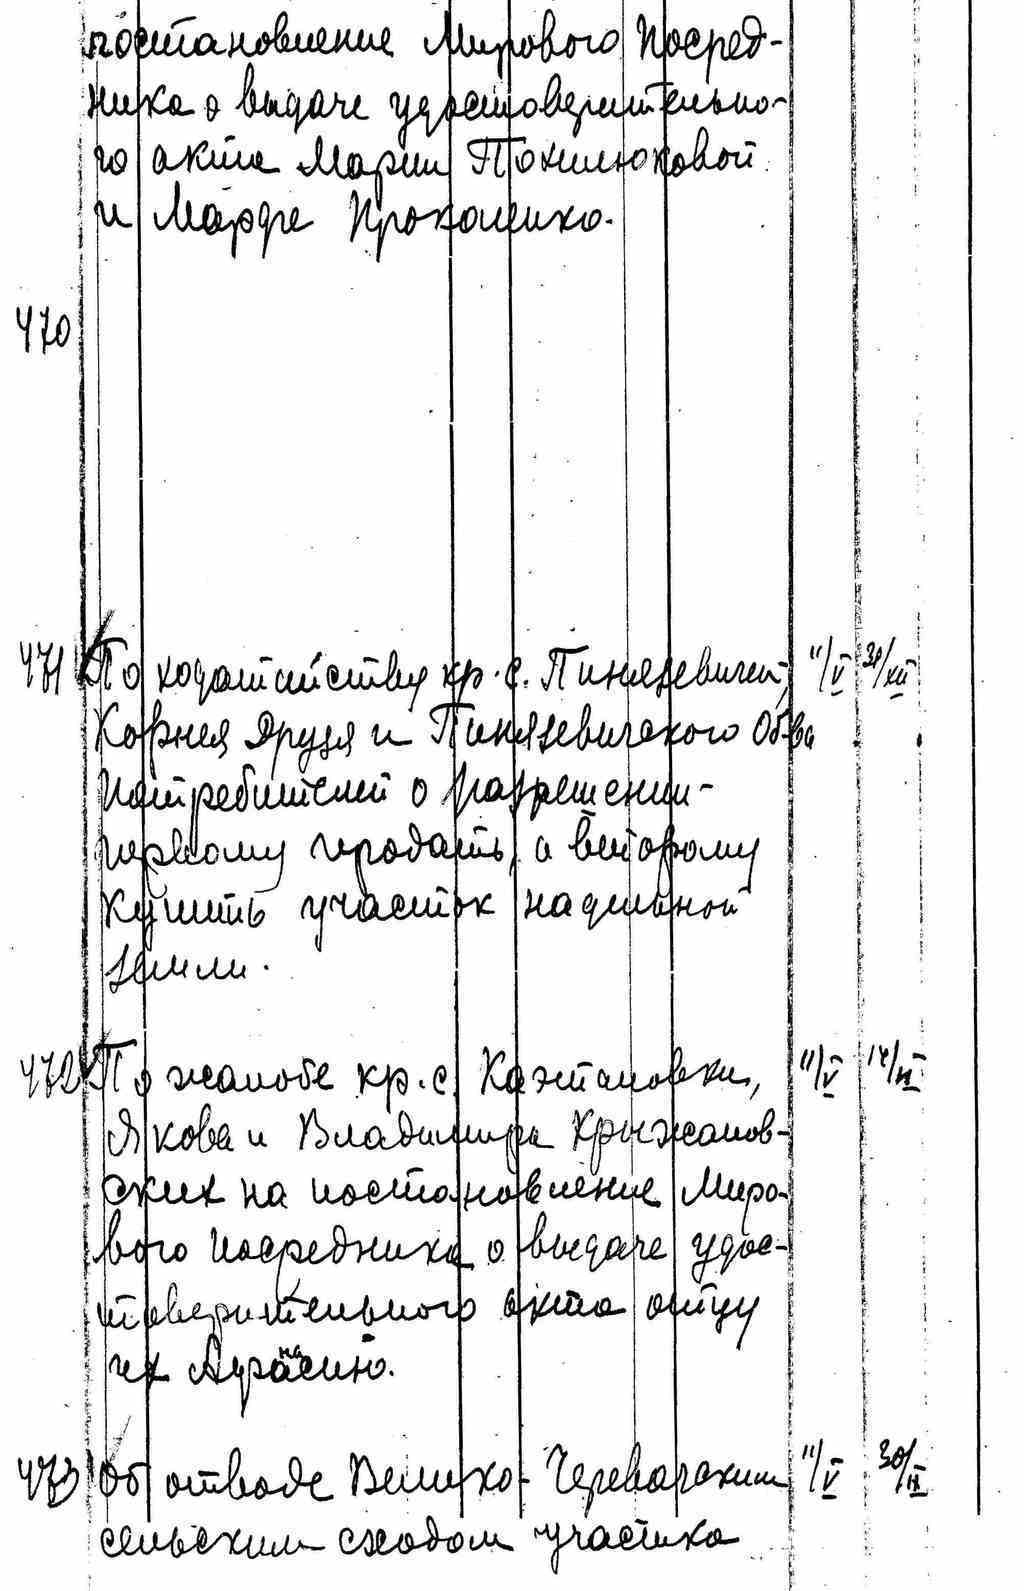 постановление Мирового Посред-
ника о выдаче удостоверительно-
го акта Марии
и Марфе Прокопенко.
470
471 По ходатайству кр. с. Пинязевичей, 11/V 30/XII
Корнея Друзя и Пинязевичского Об-ва
потребителей о разрешении-
первому продать, а второму
купить участок надельной
земли.
472 По жалобе кр. с. Каэтановки, 11/V
Якова и Владимира Крыжанов-
ских на постановление Миро-
вого посредника о выдаче удос-
товерительного акта отцу
их Афанасию.
473 Об отводе Велико-Черевачским 11/V 30/IX
сельским сходом участка